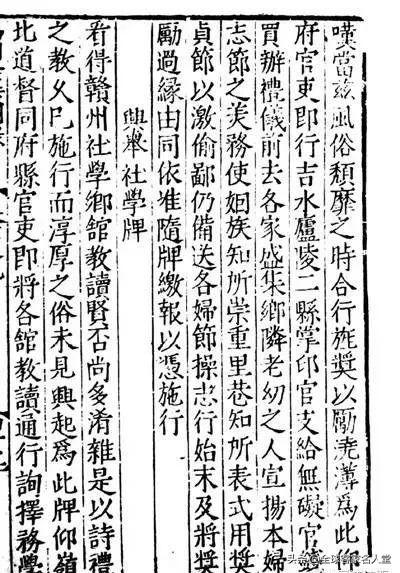 嘆當茲風俗頽靡之時合行旌奬以勵澆薄爲此仰
府官吏即行吉水廬陵二縣掌印官支給無礙官錢
買辦禮儀前去各家盛集鄉隣老幼之人宣揚本婦
志節之美務使姻族知所崇重里巷知所表式用奬
貞節以激偷鄙仍備送各婦節操志行始末及將奬
勵過緣由同依准隨牌繳報以憑施行
興舉社學牌
看得贛州社學鄉舘教讀賢否尚多淆雜是以詩禮
之教久已施行而淳厚之俗未見興起爲此牌仰嶺
北道督同府縣官吏即將各舘教讀通行詢擇務學
头条 @全球客家名人堂